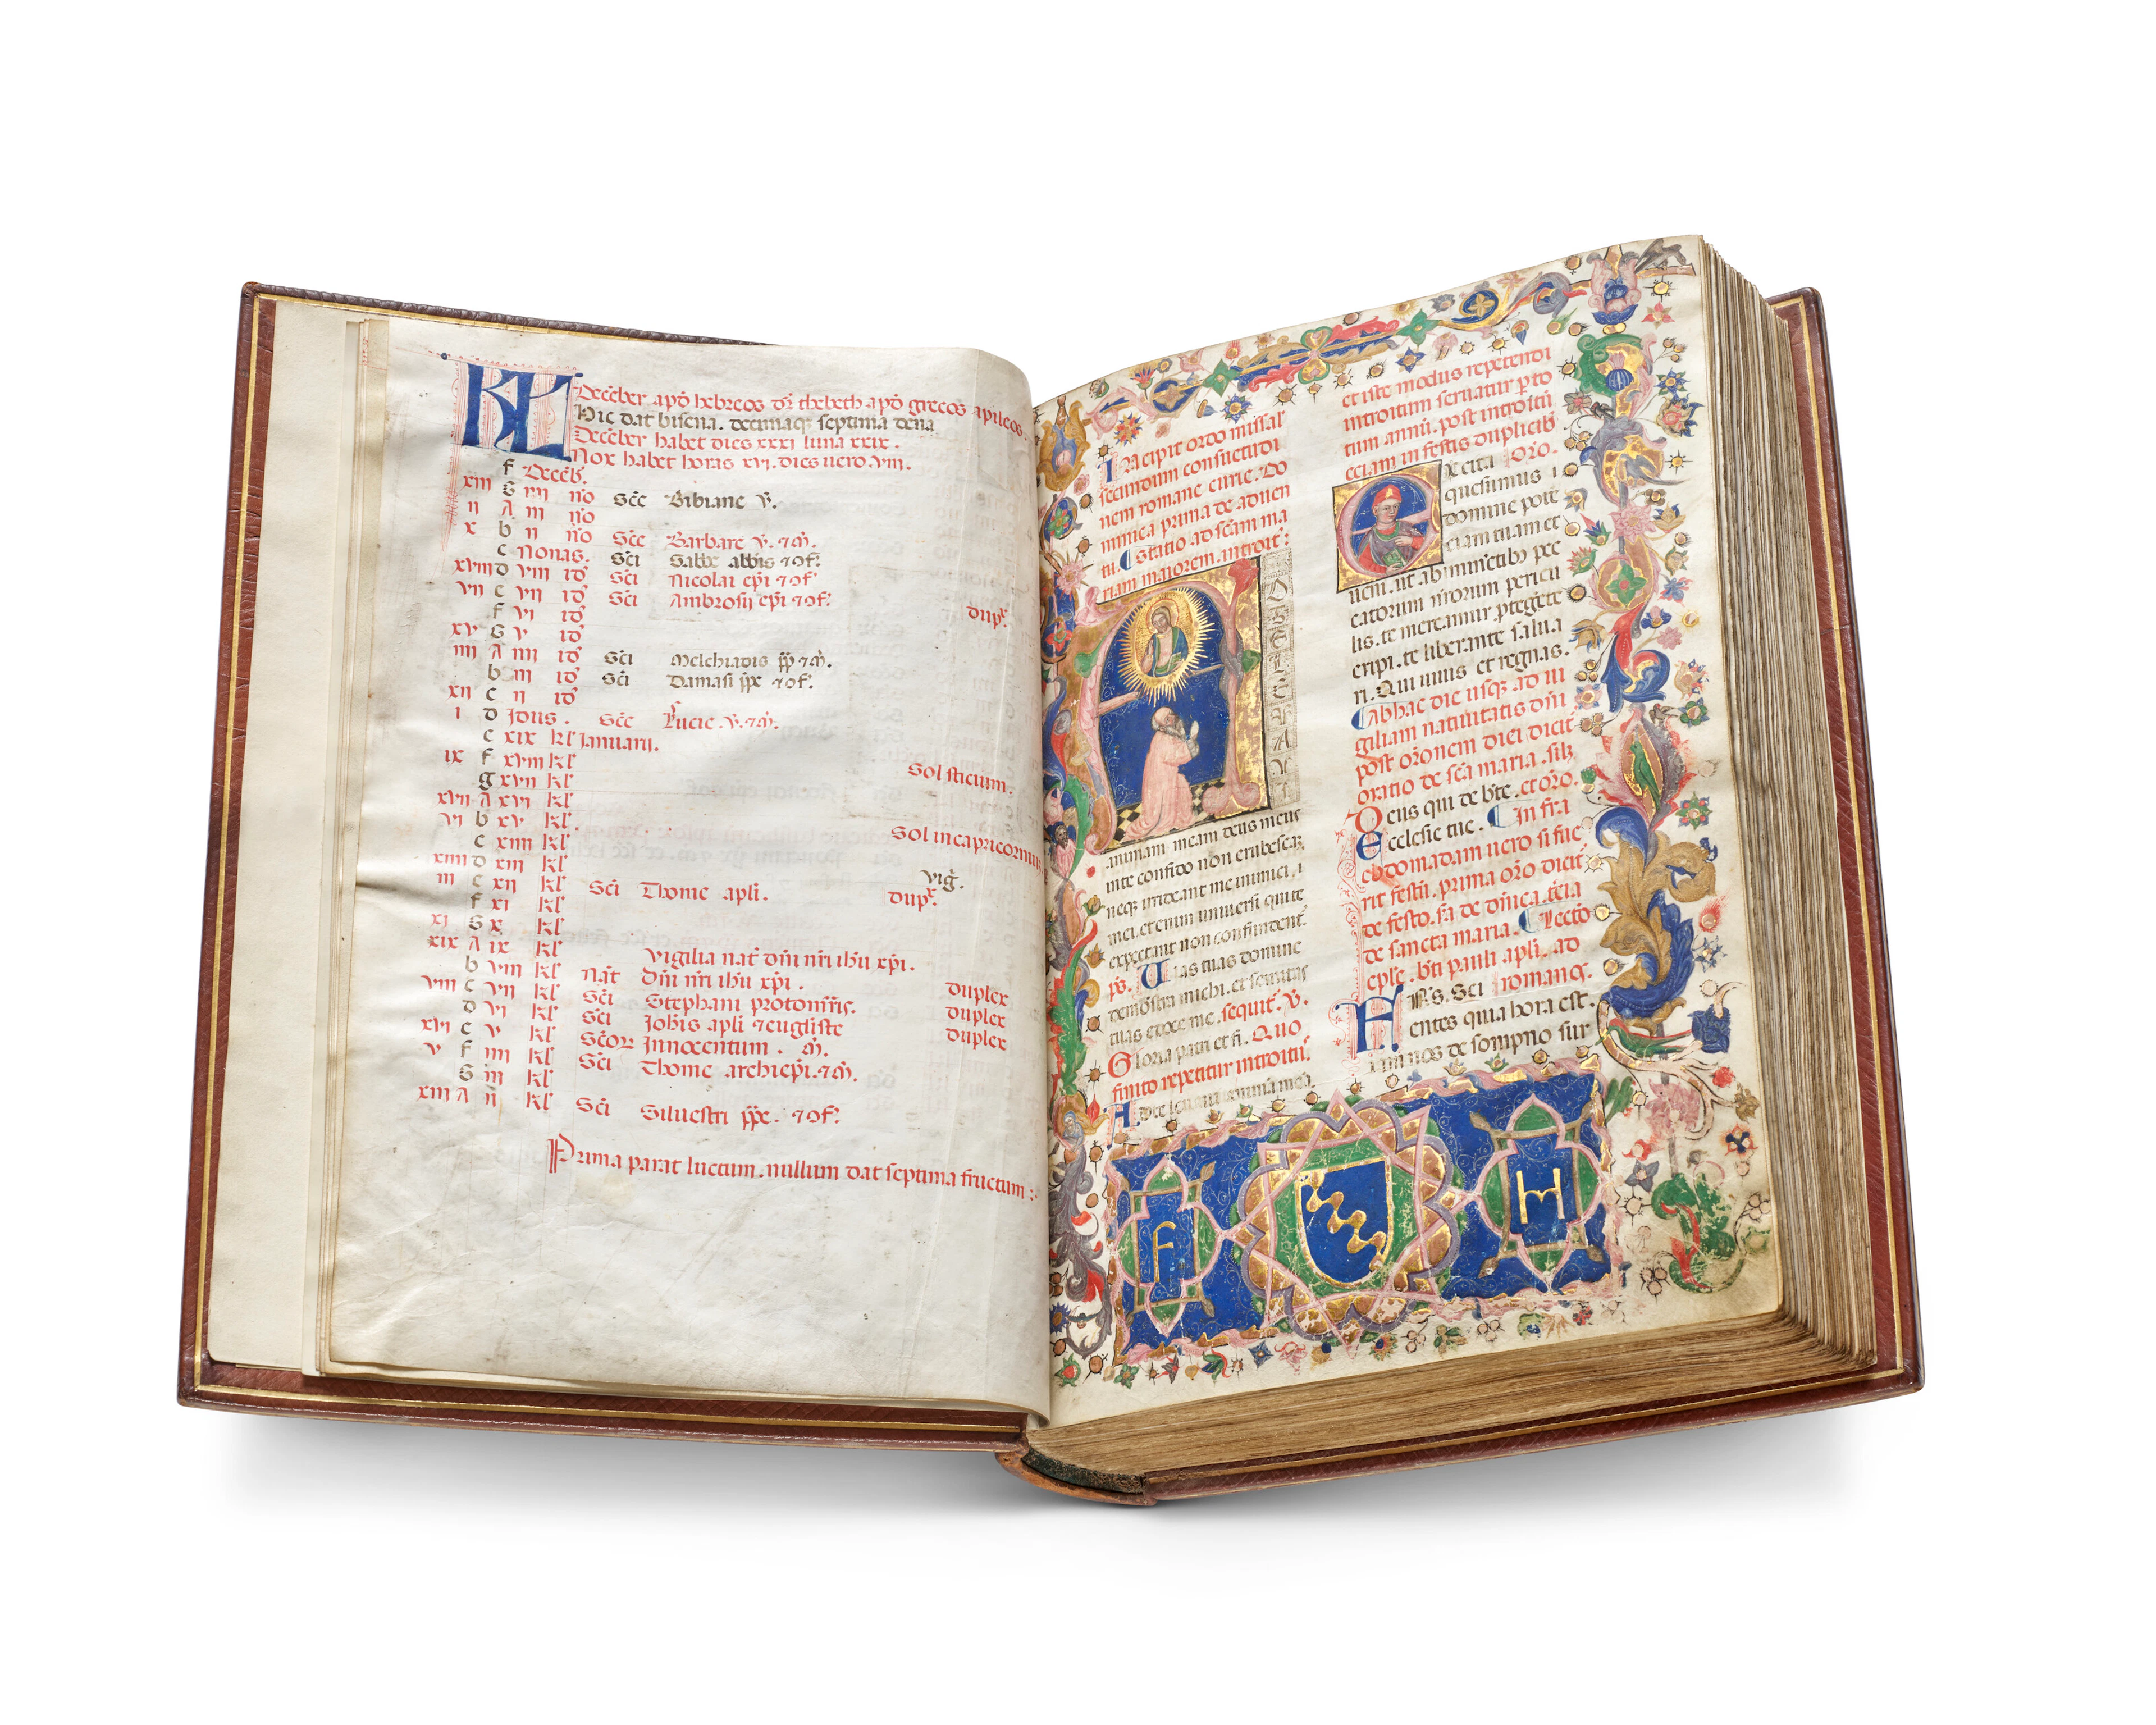 KL Deceber apd hebreos dr thebeth apd grecos apileos.
Hic dat bisena. decimaq septima dena
Deceber habet dies xxxi luna xxix.
Nox habet horas xvi. dies uero. viii.
f Deceb.
xiii G iiii no Sce Bibiane v.
ii A iii no
x b ii no Sce Barbare v. ⁊ m.
c Nonas. Sci Sabbe abbis ⁊ 9f.
xviii d viii id Sci Nicolai epi ⁊ 9f
vii e vii id Sci Ambrosii epi ⁊ 9f. dup.
f vi id
xv G v id
iiii A iiii id Sci Melchiadis pp ⁊ m.
b iii id Sci Damasi ppe ⁊ 9f.
xii c ii id
i d Idus. Sce Lucie v. ⁊ m.
e xix kl Januarii.
ix f xviii kl
g xvii kl Sol sticium.
xvii A xvi kl
vi b xv kl
c xiiii kl Sol in capricornus
xiiii d xiii kl
iii e xii kl Sci Thome apli. vig. dup.
f xi kl
xi G x kl
xix A ix kl Vigilia nat dni nri ihu xpi.
b viii kl nat Dni nri ihu xpi. duplex
viii c vii kl Sci Stephani protomris. duplex
d vi kl Sci Johis apli ⁊ euagliste duplex
xvi e v kl Scor Innocentum. m.
v f iiii kl Sci Thome archiepi. ⁊ m.
G iii kl
xiii A ii kl Sci Siluestri ppe. ⁊ 9f.
Prima parat luctum. nullum dat septima fructum
Incipit ordo missal
secundum consuetudi
nem romane curie. Do
minica prima de aduen
tu. Statio ad scam ma
riam maiorem. introit:
A
animam meam deus meus
in te confido non erubescaz
neq irrideant me inimici
mei. et enim uniuersi qui te
expectant non confundent.
ps. Uias tuas domine
demostra michi. et semitas
tuas edoce me. sequit. V.
Gloria patri et fi. Quo
finito repetitur introitu.
Ad te leuaui animā mea
et iste modus repetendi
introitum seruatur p to
tum annu. post introitu
eciam in festis duplicib
Excita Oro.
quesumus
domine pote
ciam tuam et
ueni. ut ab iminetib pec
catorum nrorum pericu
lis. te mereamur ptegete
eripi. te liberante salua
ri. Qui uiuis et regnas.
Ab hac die usq ad ui
giliam natiuitatis dni
post oronem diei dicit
oratio de sca maria. silz
Deus qui de bte. et oro.
Ecclesie tue. Infra
ebdomadam uero si fue
rit festu. prima oro dicit
de festo. sa de dnica. tcia
de sancta maria. Lecto
eple. bti pauli apli. ad
romanos.
FRS. Sci
entes quia hora est.
iam nos de sompno sur
F H